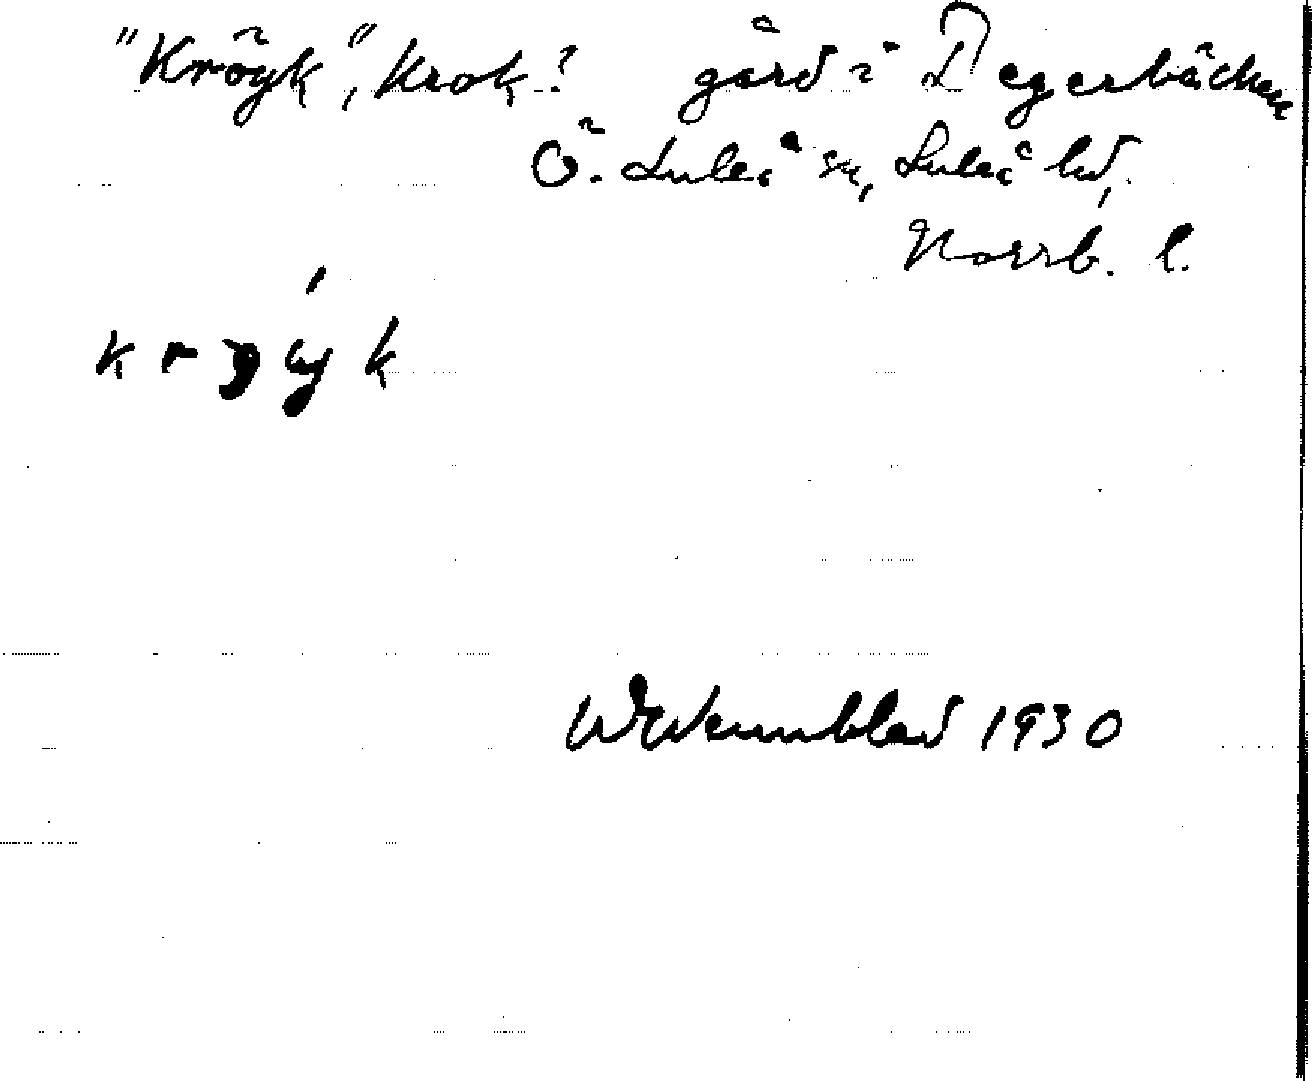 "Kröyk", Krok? gård i Degerbäcken
Ö. Luleå sn, Luleå hd,
Norrb. l.
W Wennblad 1930